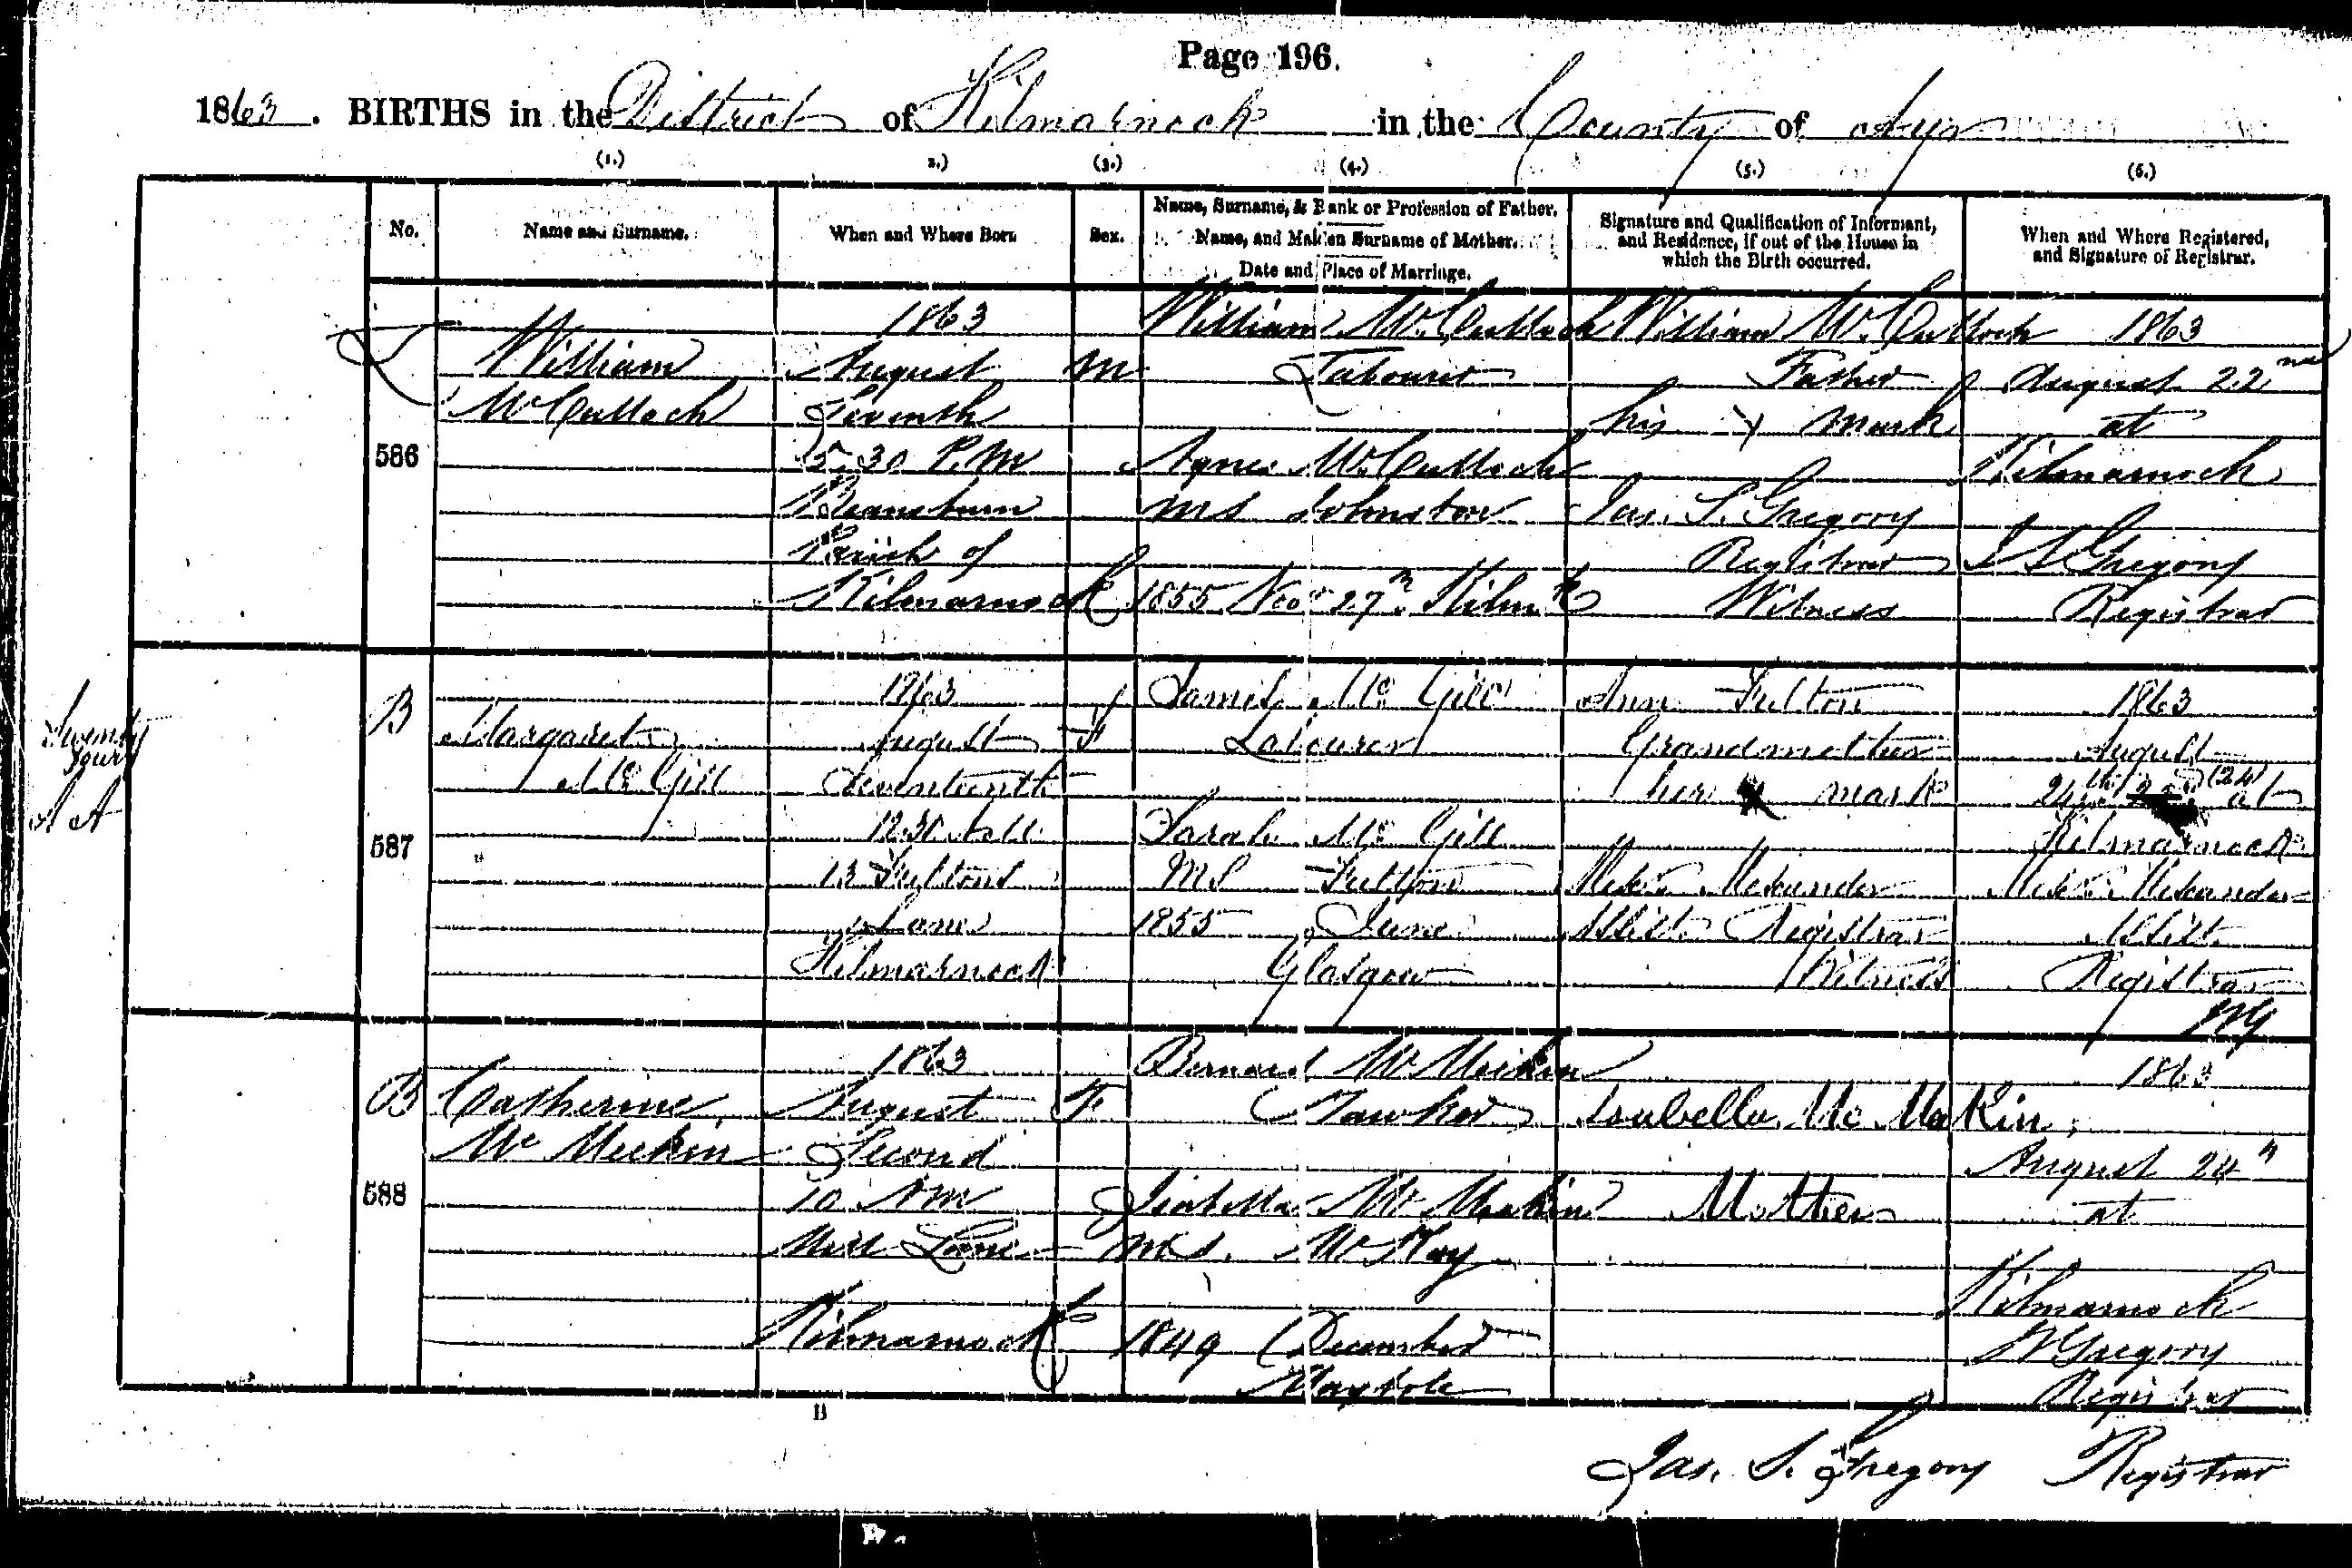 Page 196.
1863. BIRTHS in the District of Kilmarnock in the County of Ayr
(1.) 2.) (3.) (4.) (5.) (6.)
No.
Name and Surname.
When and Where Born
Sex.
Name, Surname, & Rank or Profession of Father.
Name, and Maiden Surname of Mother.
Date and Place of Marriage.
Signature and Qualification of Informant,
and Residence, if out of the House in
which the Birth occurred.
When and Where Registered,
and Signature of Registrar.
586
William
McCulloch
1863
August
Seventh
5. 30 P.M
Beansburn
Parish of
Kilmarnock
M
William McCulloch
Labourer
Agnes McCulloch
MS Johnston
1855 Novr 27th Kilmk
William McCulloch
Father
his x mark
Jas. S. Gregory
Registrar
Witness
1863
August 22nd
at
Kilmarnock
J S Gregory
Registrar
Twenty
four
A A
B
587
Margaret
Mc Gill
1863
August
Seventeenth
12.30 A.M.
13 Fultons
Lane
Kilmarnock
F
Mc Gill
Labourer
Sarah Mc Gill
MS Fulton
1855 June
Glasgow
Ann Fulton
Grandmother
her x mark
Alexr Alexander
Assist. Registrar
Witness
1863
August
24th (24) at
Kilmarnock
Alexr Alexander
Assist.
Registrar
B
588
Catherine
Mc Meekin
1863
August
Second
10 AM
Mill Lane
Kilmarnock
F
Bernard McMeikin
Hawker
Isabella McMeekin
MS. McKay
1849 December
Maybole
Isabella Mc MeeKin,
Mother
1863
August 24th
at
Kilmarnock
Gregory
Registrar
B
Jas. S. Gregory Registrar